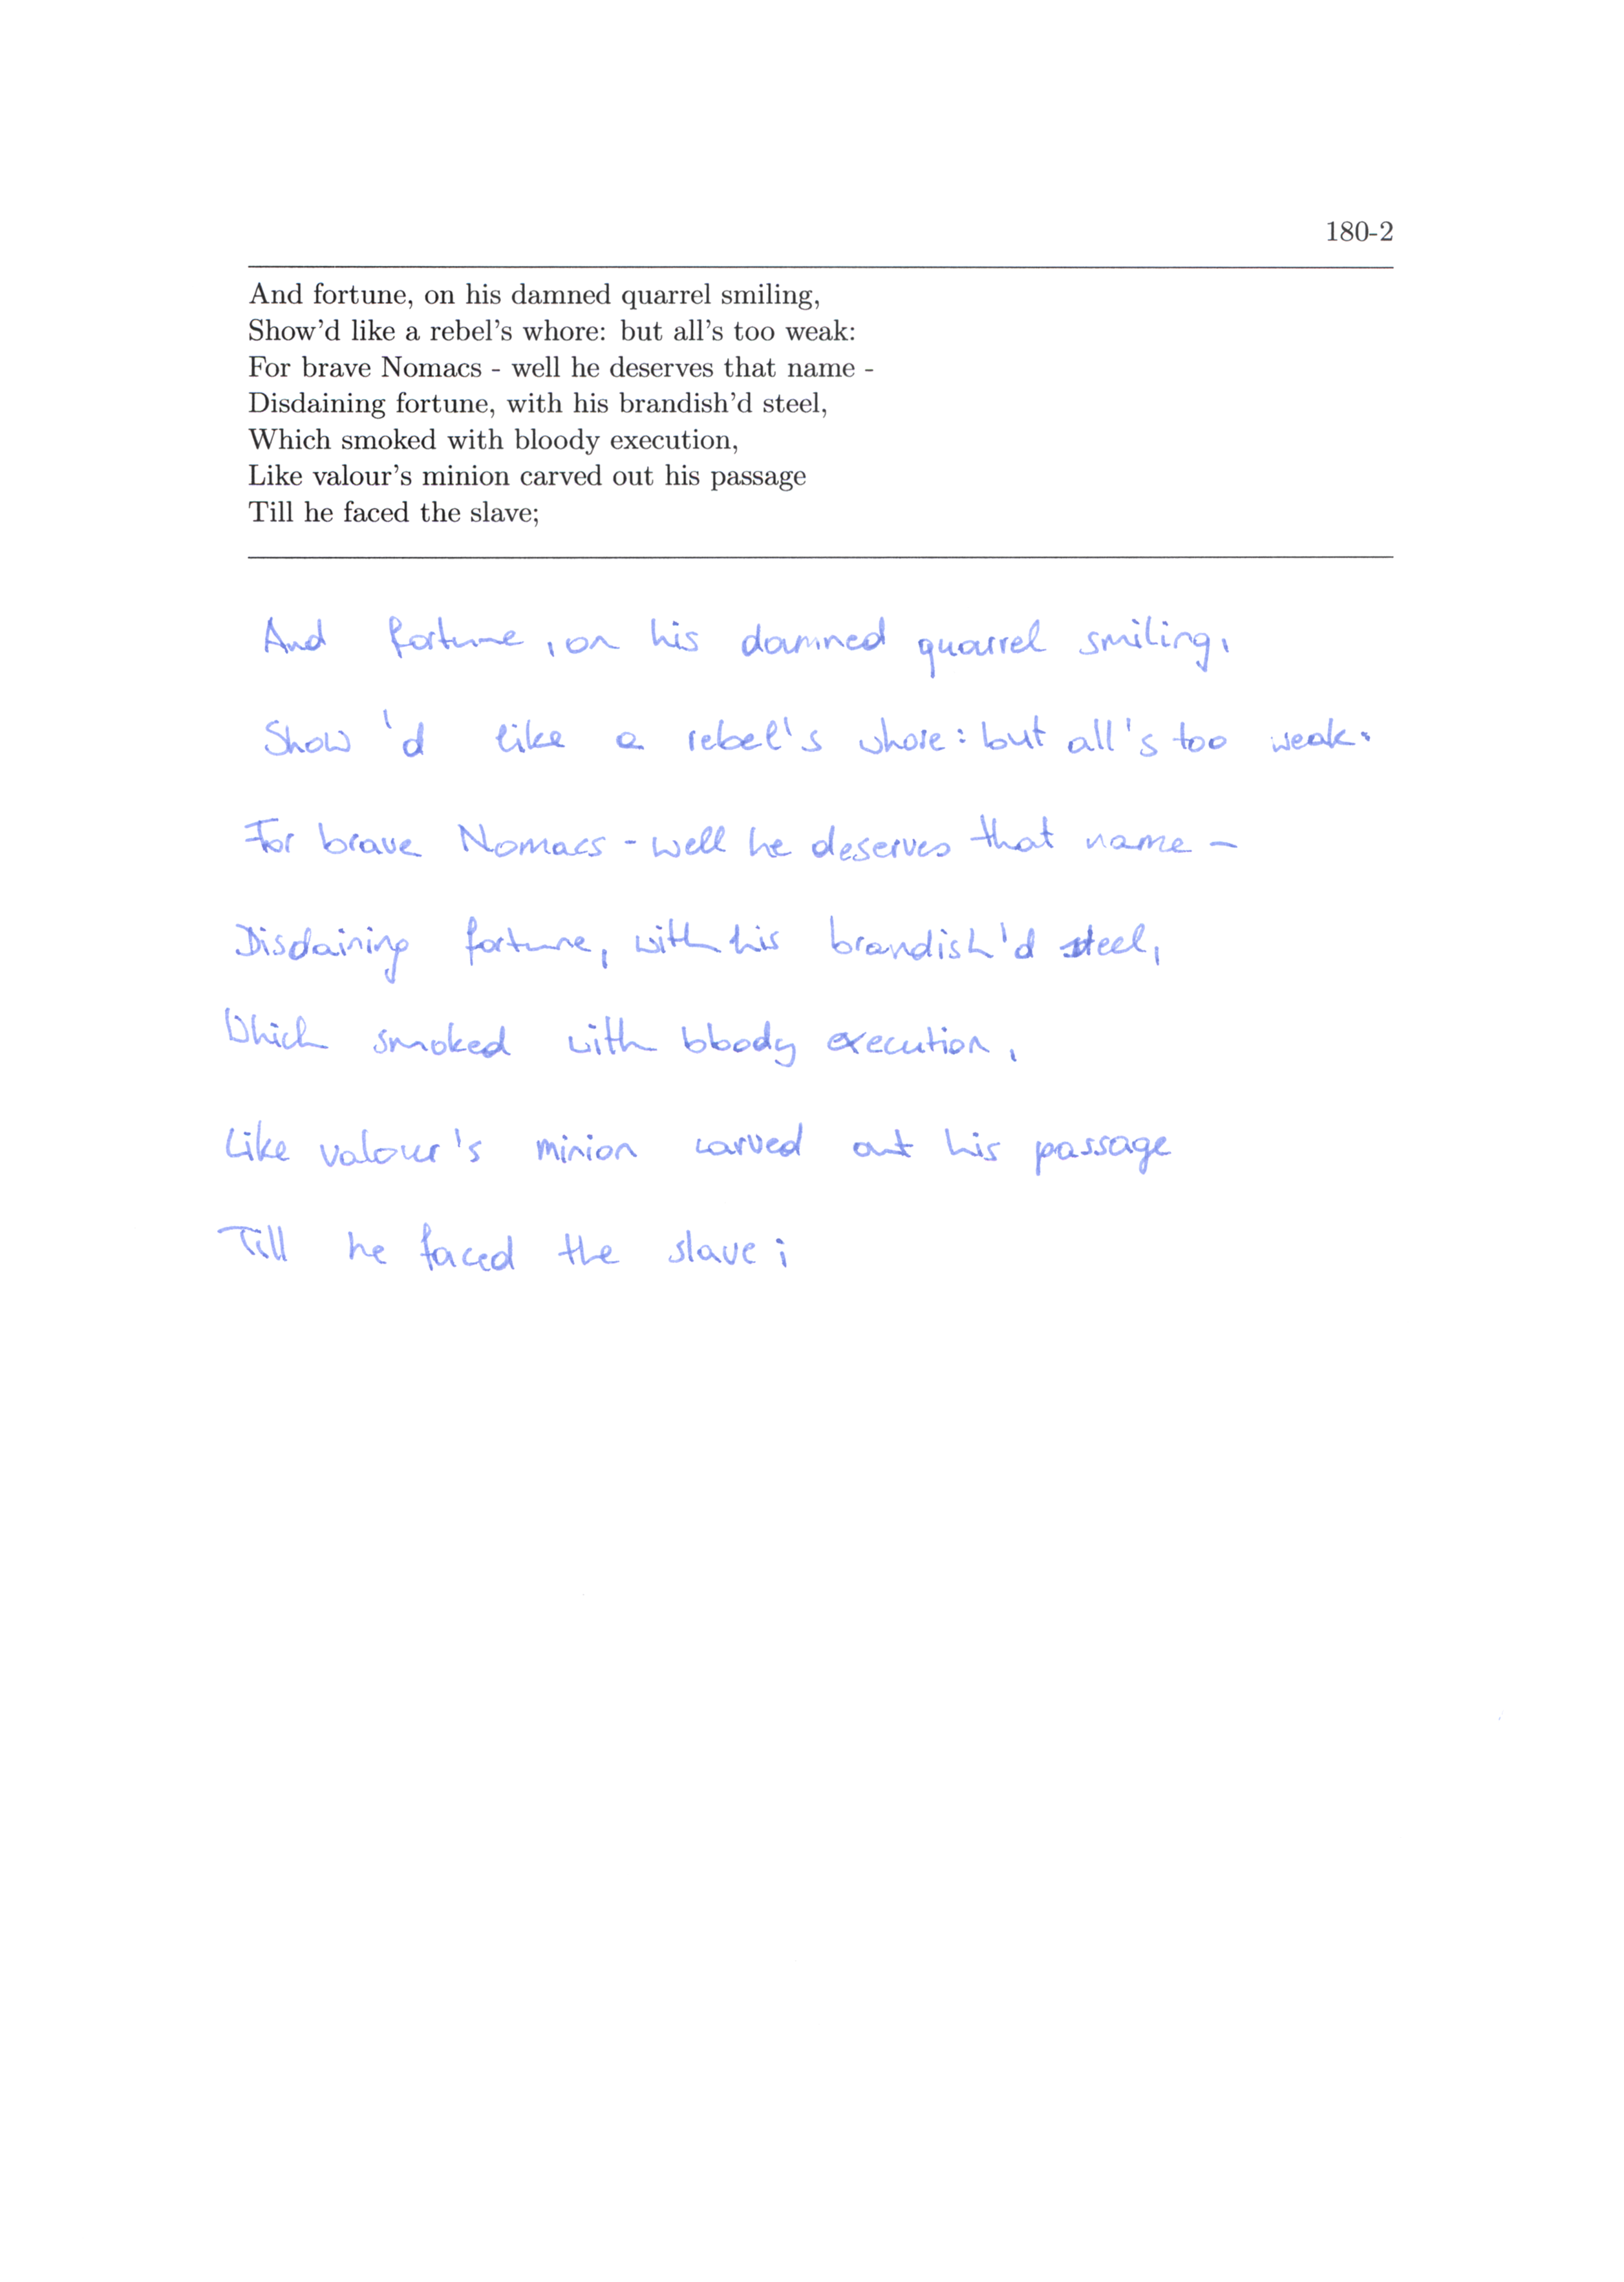 180-2
And fortune, on his damned quarrel smiling,
Show'd like a rebel's whore: but all's too weak:
For brave Nomacs - well he deserves that name -
Disdaining fortune, with his brandish'd steel,
Which smoked with bloody execution,
Like valour's minion carved out his passage
Till he faced the slave;
And fortune, on his damned quarrel smiling,
Show'd like a rebel's whore: but all's too weak.
For brave Nomacs - well he deserves that name -
Disdaining fortune, with his brandish'd steel,
Which smoked with bloody execution,
Like valour's minion carved out his passage
Till he faced the slave;